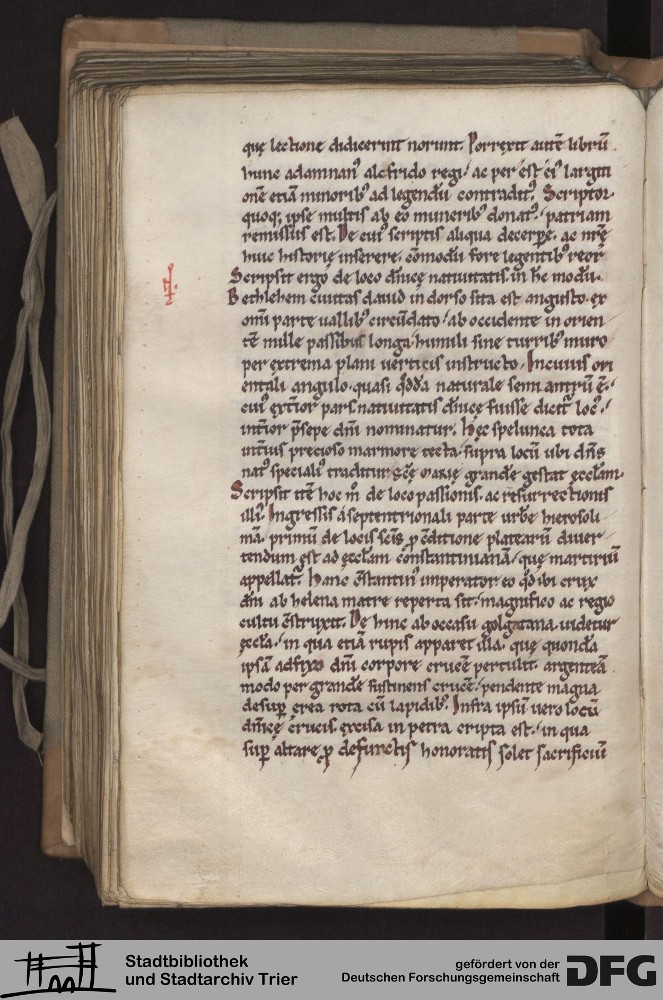 quę lectione didicerint norunt. Porrexit autē librū
hunc adamnan᾽ alcfrido regi᾽ ac per ēst ei᾽ largiti
onē etiā minorib᾽ ad legendū contradit᾽. Scriptor
quoq; ipse multis ab eo munerib᾽ donat᾽ patriam
remissus est. De cui᾽ scriptis aliqua decerpe᾽ ac nr̄ę
huic historię inserere. cōmodū fore legentib᾽ reor
Scripsit ergo de loco dn̄icę natiuitatis in hc̄ modū.
Bethlehem ciuitas dauid in dorso sita est angusto ex
omni parte uallib᾽ circūdato᾽ ab occidente in orien
tē mille passibus longa humili sine turrib᾽ muro
per extrema plani uerticis instructo. Incuius ori
entali angulo quasi qd̄da naturale semi antrū ē.
cui᾽ ext̄ior pars natiuitatis dn̄icę fuisse dicit̄ loc᾽.
int̄ior p̄sepe dn̄i nominatur. Hęc spelunca tota
int̄ius precioso marmore tecta supra locū ubi dn̄s
nat᾽ speciali᾽ traditur scę̄ marię grandē gestat ęccłam.
Scripsit itē hoc m̄ de loco passionis ac resurrectionis
illi᾽. Ingressis á septentrionali parte urbē hierosoli
mā. primū de locis scīs p̱ cditione platearū diuer
tendum est ad ęccłam constantinianā᾽ quę martiriū
appellat̄. Hanc c̄stantin᾽ imperator eo qd̄ ibi crux
dn̄i ab helena matre reperta sit magnifico ac regio
cultu c̄struxit. De hinc ab occasu golgatana uidetur
ęccła᾽ in qua etiā rupis apparet illa. quę quondā
ipsā adfixo dn̄i corpore crucē pertulit. argenteā
modo per grandē sustinens crucē᾽ pendente magna
desup̱ ęrea rota cū lapidib᾽. Infra ipsū uero locū
dn̄icę crucis excisa in petra cripta est᾽ in qua
sup̱ altare p̱ defunctis honoratis solet sacrificiū
Stadtbibliothek
und Stadtarchiv Trier
gefördert von der
Deutschen Forschungsgemeinschaft
DFG